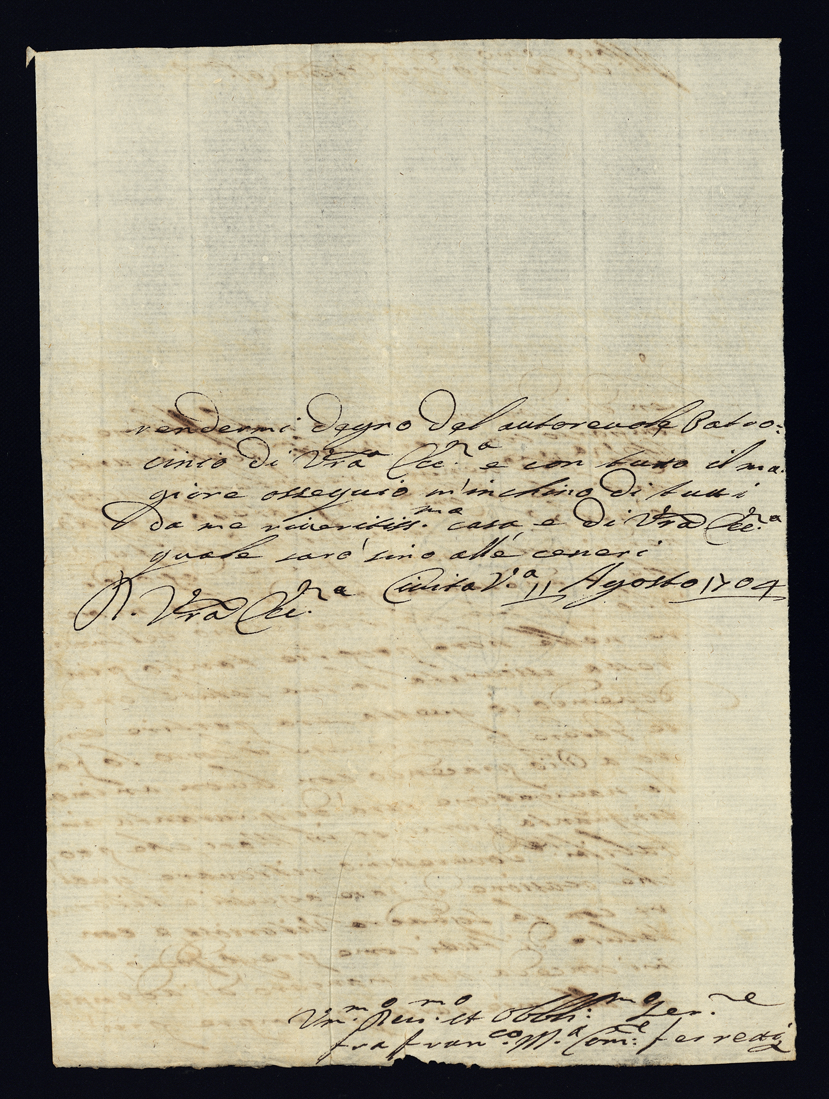 rendermi degno del autorevole Patro:
cinio di Vrã Ecc.za e con tutto il ma.
giore ossequio m'inchino di tutti
da me riveritiss.ma casa e di Vrã Ecc.za
quale sarò sino allé ceneri
Vrã Ecc.za Civita V.a 11 Agosto 1704
Um.mo Dev.mo et Obbli:mo Ser.re
fra Fran.co M.a